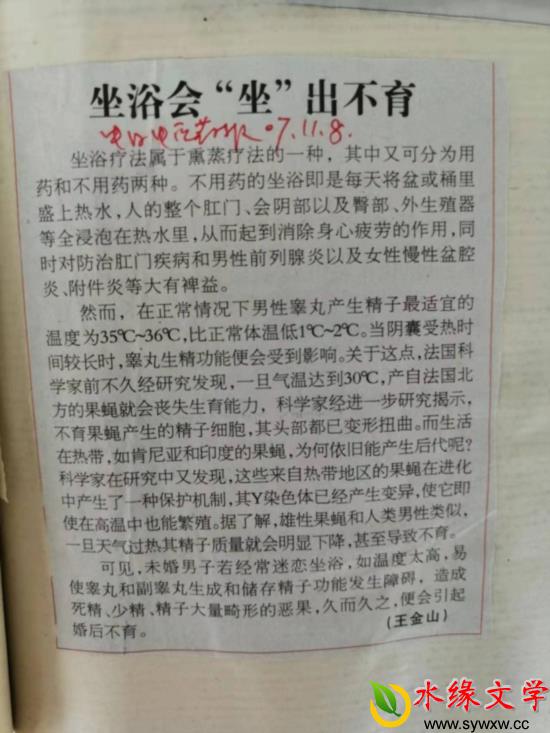 坐浴会“坐”出不育
07.11.8.
坐浴疗法属于熏蒸疗法的一种，其中又可分为用
药和不用药两种。不用药的坐浴即是每天将盆或桶里
盛上热水，人的整个肛门、会阴部以及臀部、外生殖器
等全浸泡在热水里，从而起到消除身心疲劳的作用，同
时对防治肛门疾病和男性前列腺炎以及女性慢性盆腔
炎、附件炎等大有裨益。
然而，在正常情况下男性睾丸产生精子最适宜的
温度为35℃~36℃，比正常体温低1℃~2℃。当阴囊受热时
间较长时，睾丸生精功能便会受到影响。关于这点，法国科
学家前不久经研究发现，一旦气温达到30℃，产自法国北
方的果蝇就会丧失生育能力，科学家经进一步研究揭示，
不育果蝇产生的精子细胞，其头部都已变形扭曲。而生活
在热带，如肯尼亚和印度的果蝇，为何依旧能产生后代呢？
科学家在研究中又发现，这些来自热带地区的果蝇在进化
中产生了一种保护机制，其Y染色体已经产生变异，使它即
使在高温中也能繁殖。据了解，雄性果蝇和人类男性类似，
一旦天气过热其精子质量就会明显下降，甚至导致不育。
可见，未婚男子若经常迷恋坐浴，如温度太高，易
使睾丸和副睾丸生成和储存精子功能发生障碍，造成
死精、少精、精子大量畸形的恶果，久而久之，便会引起
婚后不育。
（王金山）
水缘文学
www.sywxw.cc